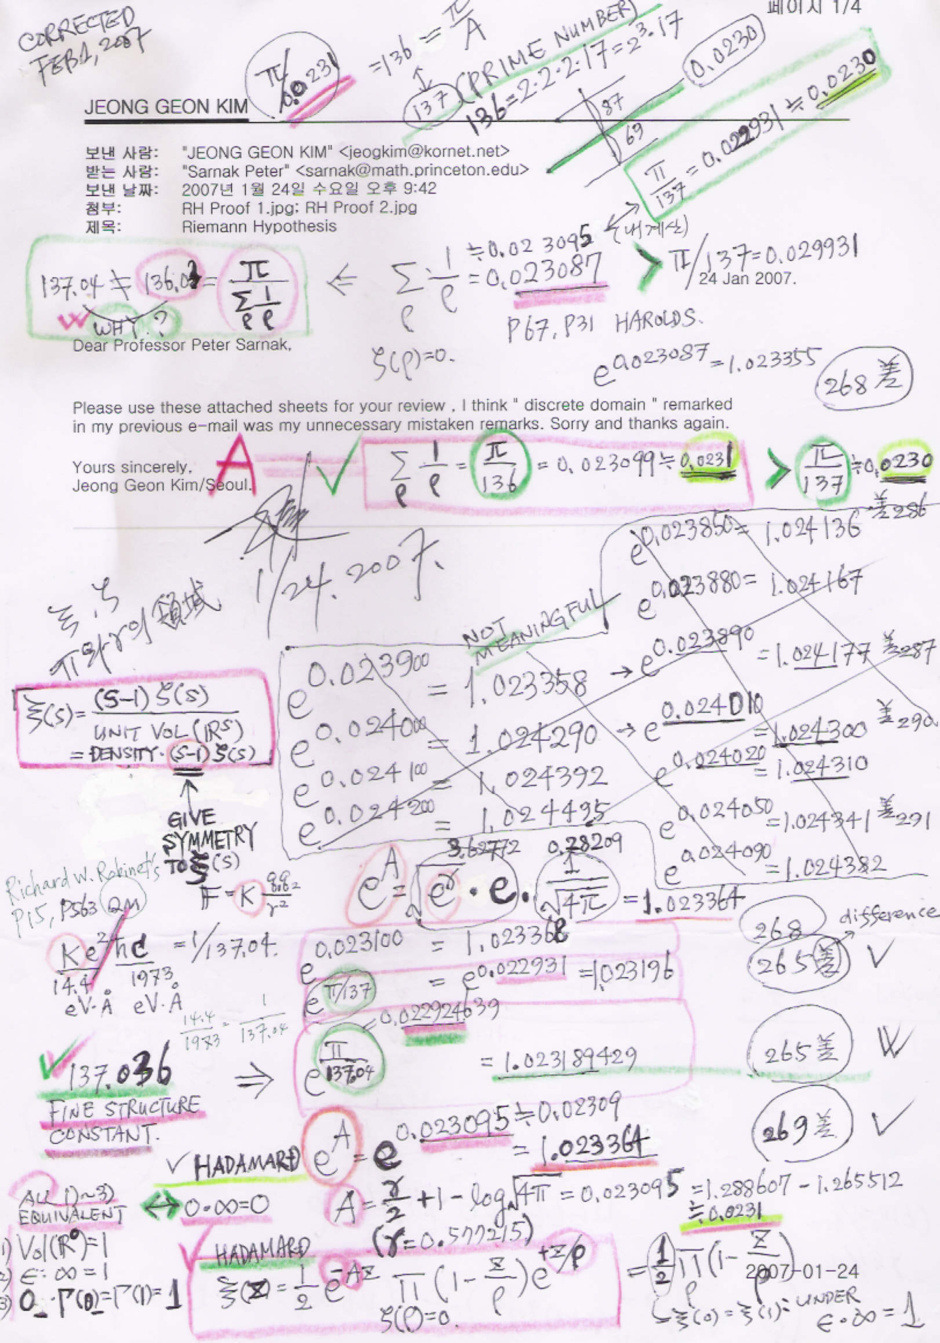 CORRECTED
FEB.1, 2007
페이지 1/4
π/0.0231 = 136 = π/A
137 (PRIME NUMBER)
136=2·2·2·17=2³·17
0.0230
87
69
π/137 = 0.022931 ≒ 0.0230
JEONG GEON KIM
보낸 사람: "JEONG GEON KIM" <jeogkim@kornet.net>
받는 사람: "Sarnak Peter" <sarnak@math.princeton.edu>
보낸 날짜: 2007년 1월 24일 수요일 오후 9:42
첨부: RH Proof 1.jpg; RH Proof 2.jpg
제목: Riemann Hypothesis
(내계산)
137.04 ≠ 136.03 = π/Σρ 1/ρ
WHY.?
⇐ Σρ 1/ρ ≒ 0.023095
= 0.023087 > π/137=0.029931
24 Jan 2007.
P67, P31 HAROLDS.
Dear Professor Peter Sarnak,
ζ(ρ)=0.
e^0.023087 = 1.023355
268 差
Please use these attached sheets for your review , I think " discrete domain " remarked
in my previous e-mail was my unnecessary mistaken remarks. Sorry and thanks again.
Yours sincerely,
Jeong Geon Kim/Seoul.
A √ Σρ 1/ρ = π/136 = 0.023099 ≒ 0.0231 > π/137 ≒ 0.0230
1/24.2007.
ξ, ζ
π와 γ의 領域
NOT
MEANINGFUL
e^0.023850 = 1.024136 差286
e^0.023880 = 1.024167
e^0.023900 = 1.023358 → e^0.023890 = 1.024177 差287
e^0.024000 = 1.024290 → e^0.024010 = 1.024300 差290
e^0.024020 = 1.024310
e^0.024100 = 1.024392
e^0.024050 = 1.024341 差291
e^0.024200 = 1.024495
e^0.024090 = 1.024382
ξ(s)= (S-1) ζ(s)
UNIT VOL (IR^S)
= DENSITY·(S-1) ζ(s)
GIVE
SYMMETRY
TO ξ(s)
Richard W. Robinett's
P15, P563 QM
F = K qq/r²
e^A = √e^γ · e · 1/√4π = 1.023364
0.28209
Ke²/ħc = 1/137.04.
14.4 1973
eV·Å eV·Å
14.4/1973 = 1/137.04
e^0.023100 = 1.023368
268
difference
e^π/137 = e^0.022931 = 1.023196
265差 √
0.022924639
√ 137.036 ⇒ e^π/137.04 = 1.023189429
265差
FINE STRUCTURE
CONSTANT.
e^A = e^0.023095 ≒ 0.02309
= 1.023364
269差 √
√ HADAMARD
ALL 1)~3)
EQUIVALENT ⇔ 0·∞=0
A = γ/2 + 1 - log√4π = 0.023095 = 1.288607 - 1.265512
≒ 0.0231
(γ=0.577215)
1) Vol(R⁰)=1
2) ε·∞=1
3) 0·Γ(0)=Γ(1)=1
√ HADAMARD
ξ(z) = 1/2 e^-Az Π(1-z/ρ)e^+z/ρ = 1/2 Π(1-z/ρ)
ζ(ρ)=0.
2007-01-24
ξ(0)=ξ(1): UNDER
ε·∞=1